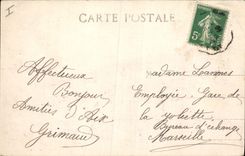 I
CARTE POSTALE
5
Affectueux
Bonjour
Amitiés d'Aix
Grimaud
Madame Loannes
Employée, Gare de
la Joliette
Bureau d'échange
Marseille